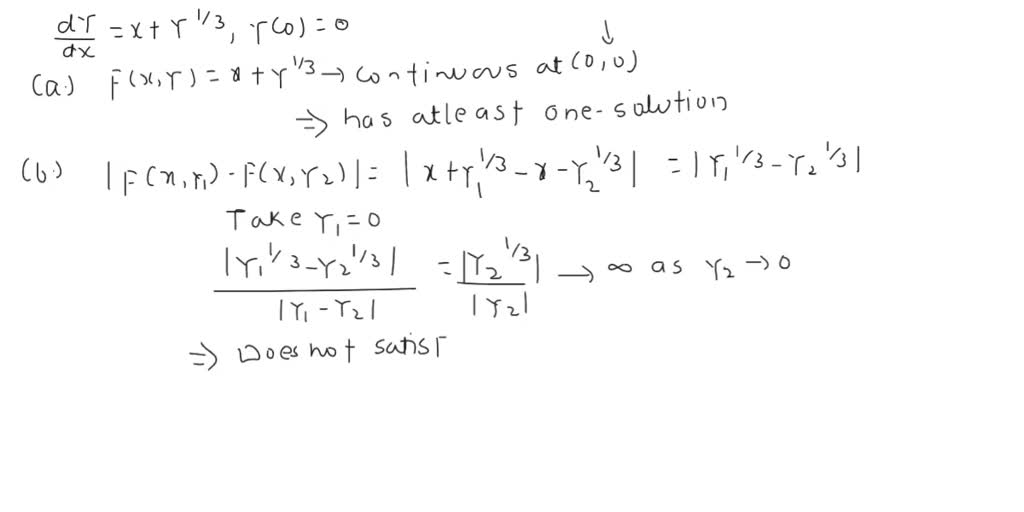 dY/dx = x + Y^1/3, Y(0) = 0
(a.) F(x,Y) = x + Y^1/3 → continuous at (0,0) ↓
⇒ has atleast one-solution
(b.) |F(x,Y₁) - F(x,Y₂)| = |x + Y₁^1/3 - x - Y₂^1/3| = |Y₁^1/3 - Y₂^1/3|
Take Y₁ = 0
|Y₁^1/3 - Y₂^1/3| / |Y₁ - Y₂| = |Y₂^1/3| / |Y₂| → ∞ as Y₂ → 0
⇒ Does not satisf